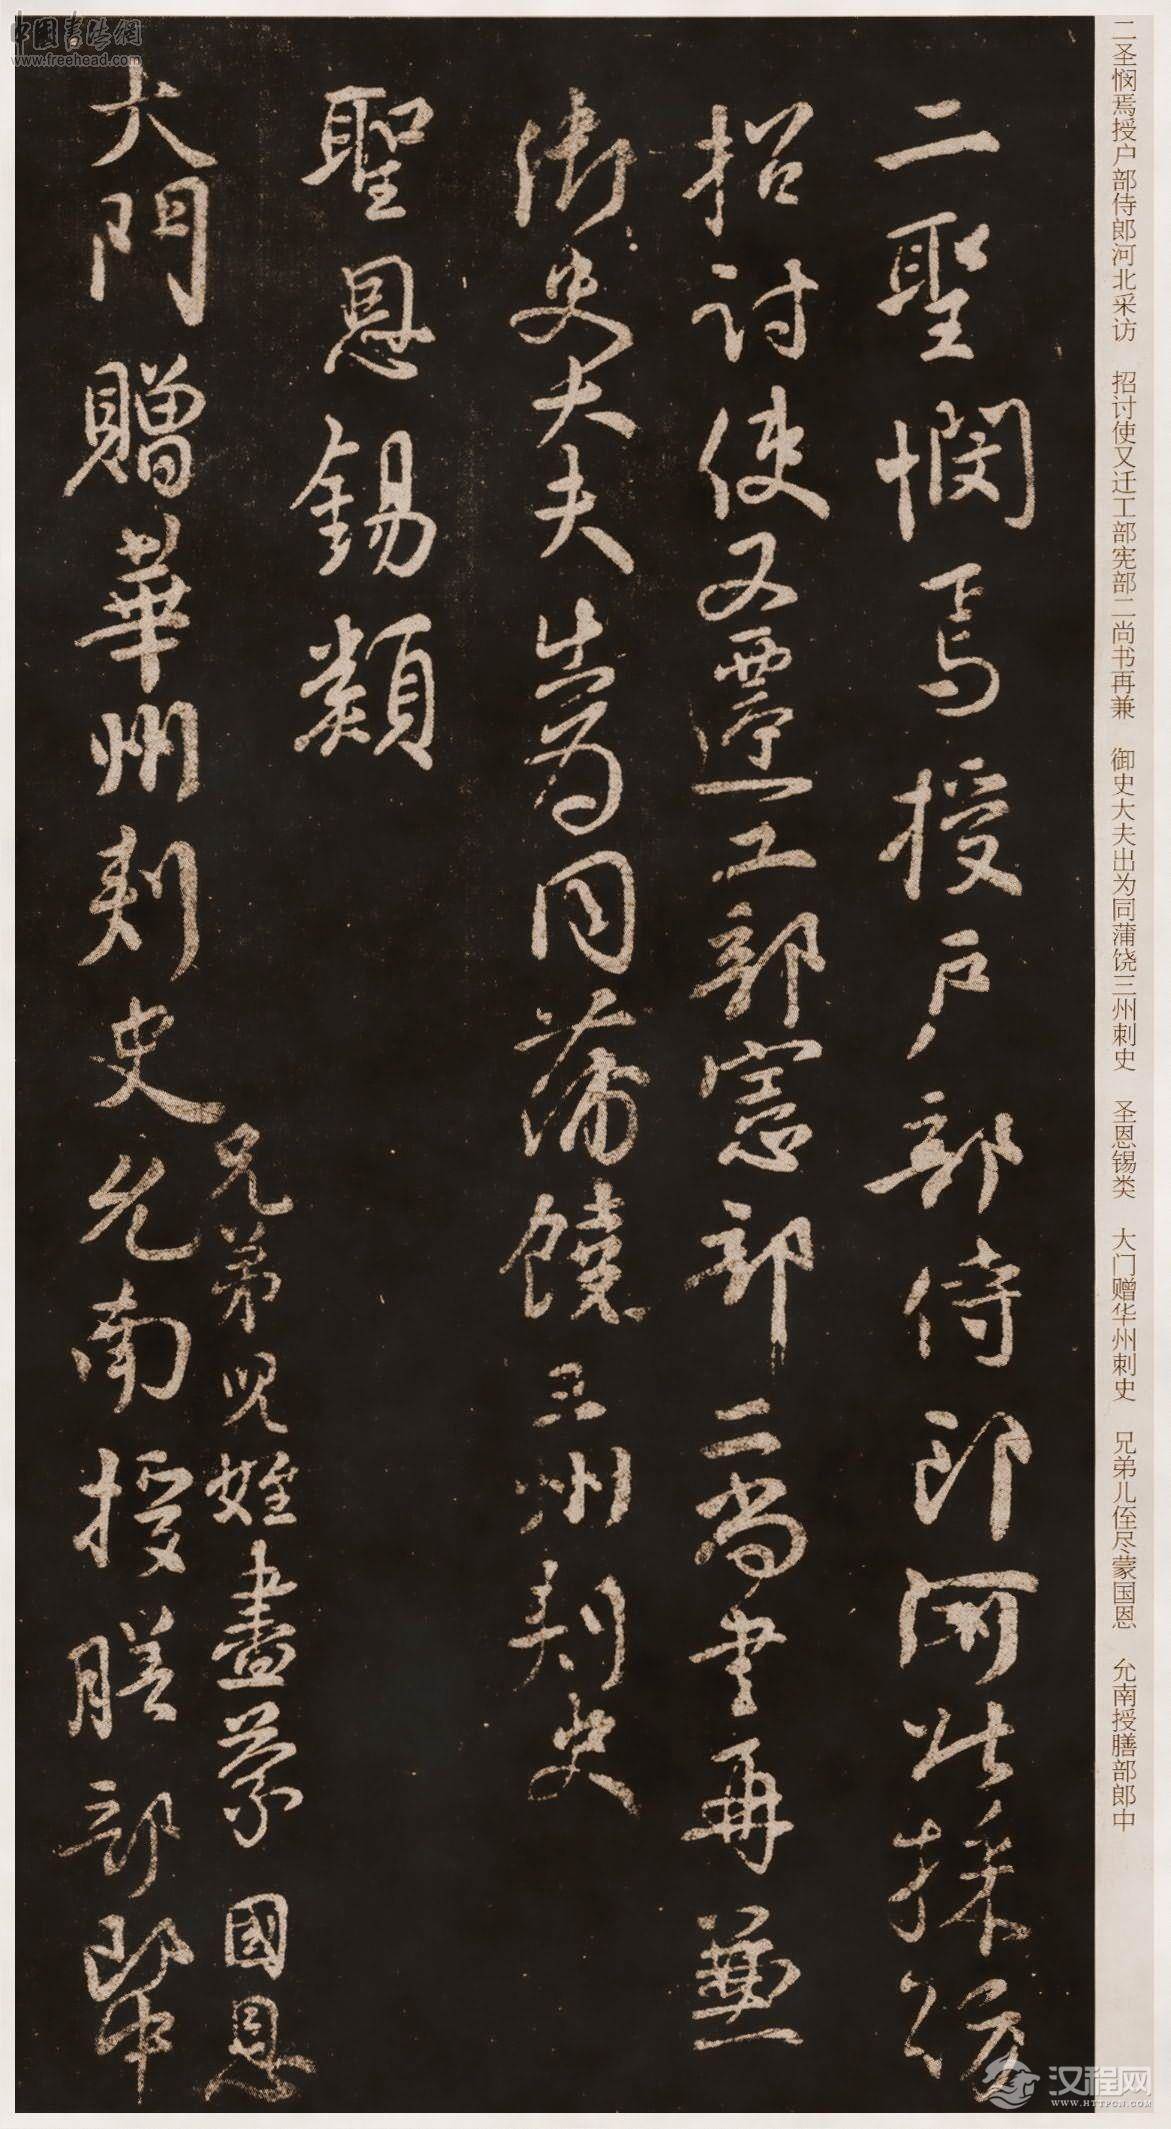 二聖憫焉授户部侍郎河北採訪
招討使又遷工部憲部二尚書再兼
御史大夫出為同蒲饒三州刺史
聖恩錫類
兄弟兒姪盡蒙國恩
大門贈華州刺史允南授膳部郎中
二圣悯焉授户部侍郎河北采访 招讨使又迁工部宪部二尚书再兼 御史大夫出为同蒲饶三州刺史 圣恩锡类 大门赠华州刺史 兄弟儿侄尽蒙国恩 允南授膳部郎中
中國書法網
www.freehead.com
汉程网
WWW.HTTPCN.COM